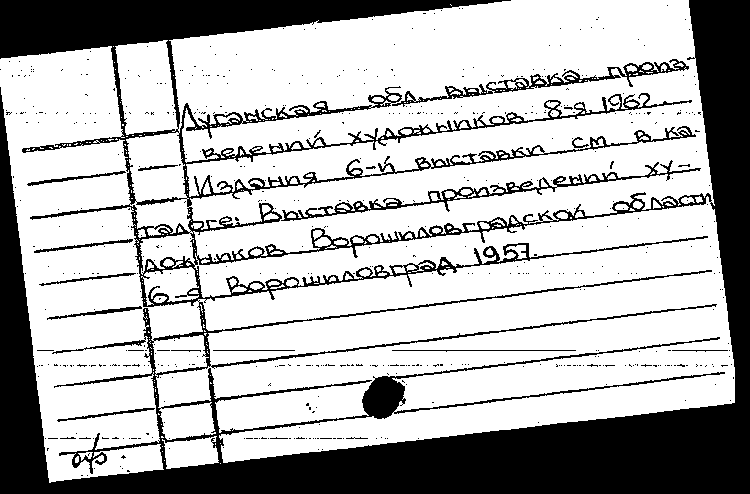 Луганская обл. выставка произ-
ведений художников 8-я 1962.
Издания 6-й выставки см. в ка-
талоге: Выставка произведений ху-
дожников Ворошиловградской области
6-я. Ворошиловград. 1957.